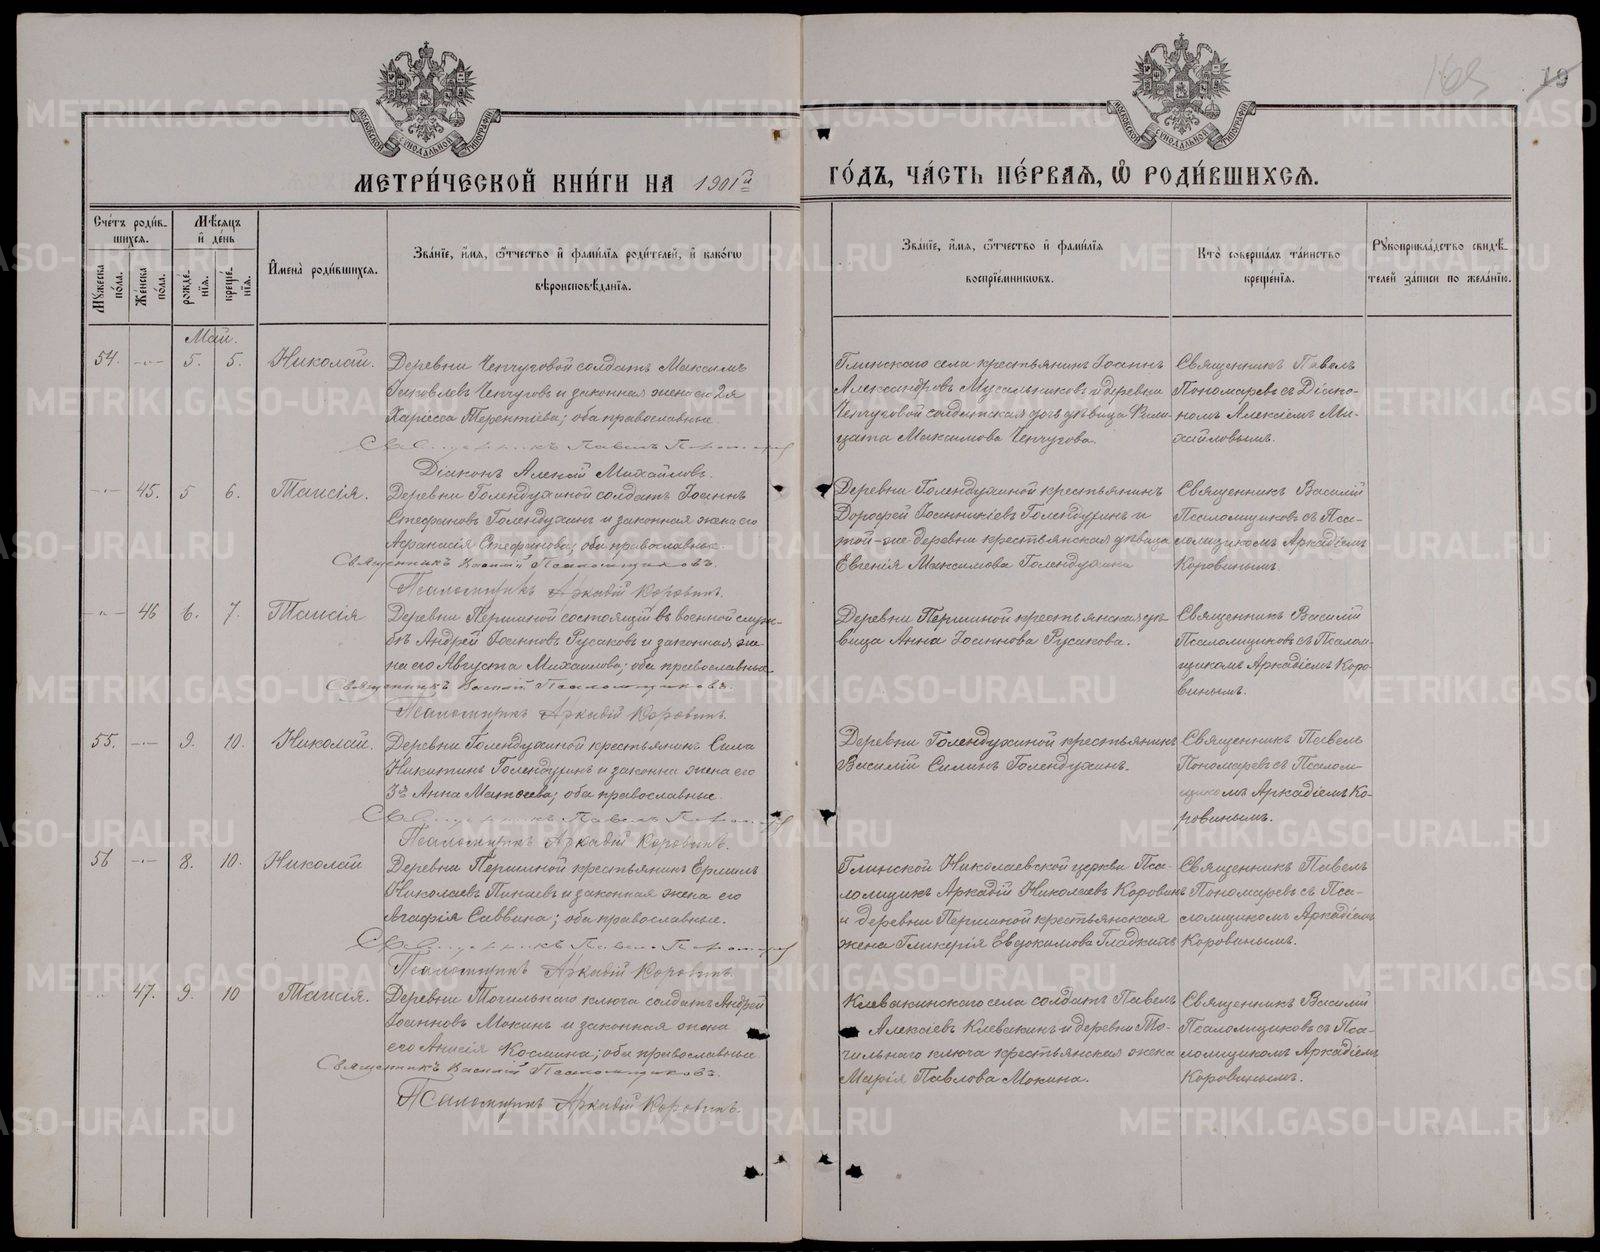 163
19
МОСКОВСКОЙ СУНОДАЛЬНОЙ ТИПОГРАФІИ
МОСКОВСКОЙ СУНОДАЛЬНОЙ ТИПОГРАФІИ
МЕТРИ́ЧЕСКОЙ КНИ́ГИ НА 1901й
ГО́ДЪ, ЧА́СТЬ ПЕ́РВАѦ, Ѡ҆ РОДИ́ВШИХСѦ.
Сче́тъ роди́в-
шихся.
Мꙋжеска по́ла.
Же́нска по́ла.
Мѣ́сяцъ и҆ де́нь
рожде́нїя.
креще́нїя.
И҆мена̀ роди́вшихся.
Зва́нїе, и҆́мя, ѻ҆́тчество и҆ фами́лїя роди́телей, и҆ како́гѡ
вѣроисповѣ́данїя.
Зва́нїе, и҆́мя, ѻ҆́тчество и҆ фами́лїя
воспрїе́мниковъ.
Кто̀ соверша́лъ та́инство
креще́нїя.
Рꙋкоприкла́дство свидѣ́-
телей за́писи по жела́нїю.
Май.
54. -"- 5. 5. Николай.
Деревни Чепчуговой солдатъ Максимъ
Іаковлевъ Чепчуговъ и законная жена его 2я
Харіесса Терентіева; оба православные.
Священникъ Павелъ Пономаревъ
Діаконъ Алексій Михайловъ.
Глинскаго села крестьянинъ Іоаннъ
Александровъ Мусальниковъ и деревни
Чепчуговой солдатская дочь дѣвица
Максимова Чепчугова.
Священникъ Павелъ
Пономаревъ съ Діако-
номъ Алексіемъ Ми-
хайловымъ.
-"- 45. 5 6. Таисія.
Деревни Голендухиной солдатъ Іоаннъ
Стефановъ Голендухинъ и законная жена его
Афанасія Стефанова; оба православные.
Священникъ Василій Псаломщиковъ.
Псаломщикъ Аркадій Коровинъ.
Деревни Голендухиной крестьянинъ
Дорофей Іоанникіевъ Голендухинъ и
той-же деревни крестьянская дѣвица
Евгенія Максимова Голендухина
Священникъ Василій
Псаломщиковъ съ Пса-
ломщикомъ Аркадіемъ
Коровинымъ.
-"- 46 6. 7. Таисія
Деревни Першиной состоящій въ военной служ-
бѣ Андрей Іоанновъ Русаковъ и законная же-
на его Августа Михаилова; оба православные.
Священникъ Василій Псаломщиковъ.
Псаломщикъ Аркадій Коровинъ.
Деревни Першиной крестьянская дѣ-
вица Анна Іоаннова Русакова.
Священникъ Василій
Псаломщиковъ съ Псалом-
щикомъ Аркадіемъ Коро-
винымъ.
55. -"- 9. 10. Николай.
Деревни Голендухиной крестьянинъ Сила
Никитинъ Голендухинъ и законна жена его
3я Анна Матѳеева; оба православные.
Священникъ Павелъ Пономаревъ
Псаломщикъ Аркадій Коровинъ.
Деревни Голендухиной крестьянинъ
Василій Силинъ Голендухинъ.
Священникъ Павелъ
Пономаревъ съ Псалом-
щикомъ Аркадіемъ Ко-
ровинымъ.
56 -"- 8. 10. Николай
Деревни Першиной крестьянинъ Ермилъ
Николаевъ Пинаевъ и законная жена его
Агафія Саввина; оба православные.
Священникъ Павелъ Пономаревъ
Псаломщикъ Аркадій Коровинъ.
Глинской Николаевской церкви Пса-
ломщикъ Аркадій Николаевъ Коровинъ
и деревни Першиной крестьянская
жена Гликерія Евдокимова Гладкихъ
Священникъ Павелъ
Пономаревъ съ Пса-
ломщикомъ Аркадіемъ
Коровинымъ.
47. 9. 10 Таисія.
Деревни Точильнаго ключа солдатъ Андрей
Іоанновъ Мокинъ и законная жена
его Анисія Космина; оба православные
Священникъ Василій Псаломщиковъ.
Псаломщикъ Аркадій Коровинъ.
Клевакинскаго села солдатъ Павелъ
Алексіевъ Клевакинъ и деревни То-
чильнаго ключа крестьянская жена
Марія Павлова Мокина.
Священникъ Василій
Псаломщиковъ съ Пса-
ломщикомъ Аркадіемъ
Коровинымъ.
METRIKI.GASO-URAL.RU